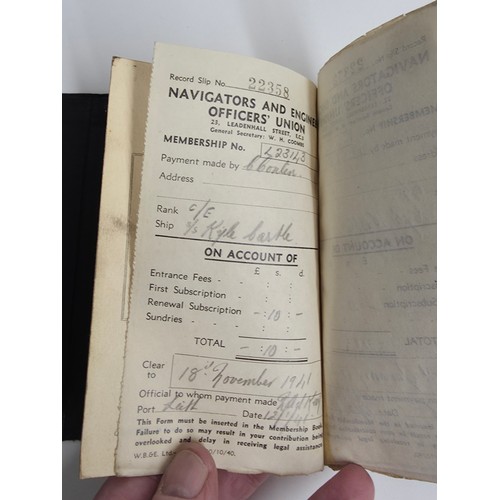 Record Slip No. 22358
NAVIGATORS AND ENGINE
OFFICERS' UNION
25, LEADENHALL STREET, E.C.3
General Secretary: W. H. COOMBS
MEMBERSHIP No. L23143
Payment made by
Address
Rank C/E
Ship S/S Kyle Castle
ON ACCOUNT OF
£ s. d.
Entrance Fees - - : :
First Subscription - : :
Renewal Subscription - - : 10 : -
Sundries - - - : :
TOTAL - : 10 : -
Clear to 18th November 1941
Official to whom payment made
Port Leith Date
This Form must be inserted in the Membership Book
Failure to do so may result in your contribution being
overlooked and delay in receiving legal assistance
W.B.&E. 10/40.